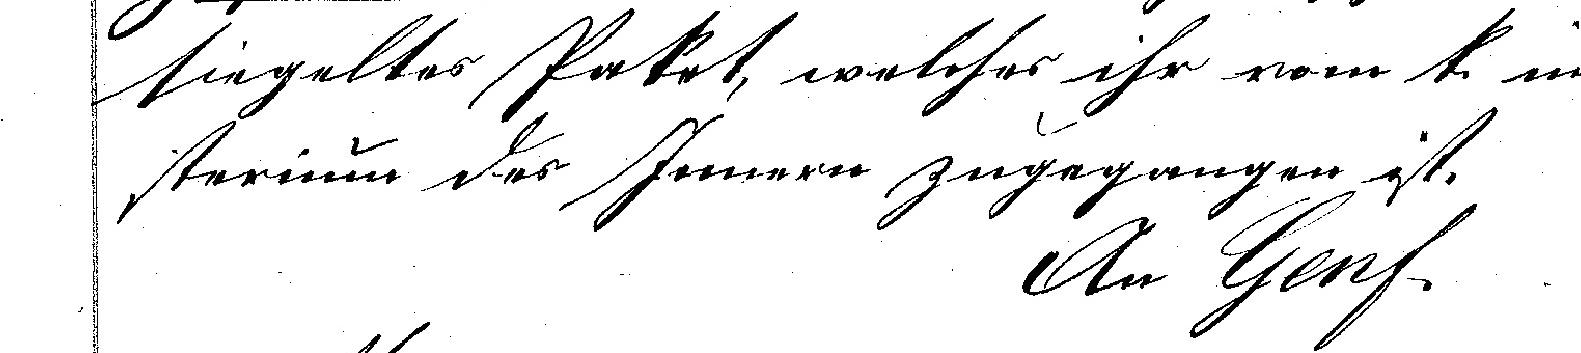 siegeltes Paket, welches ihr vom k.
sterium des Innern zugegangen ist.
An Genf.